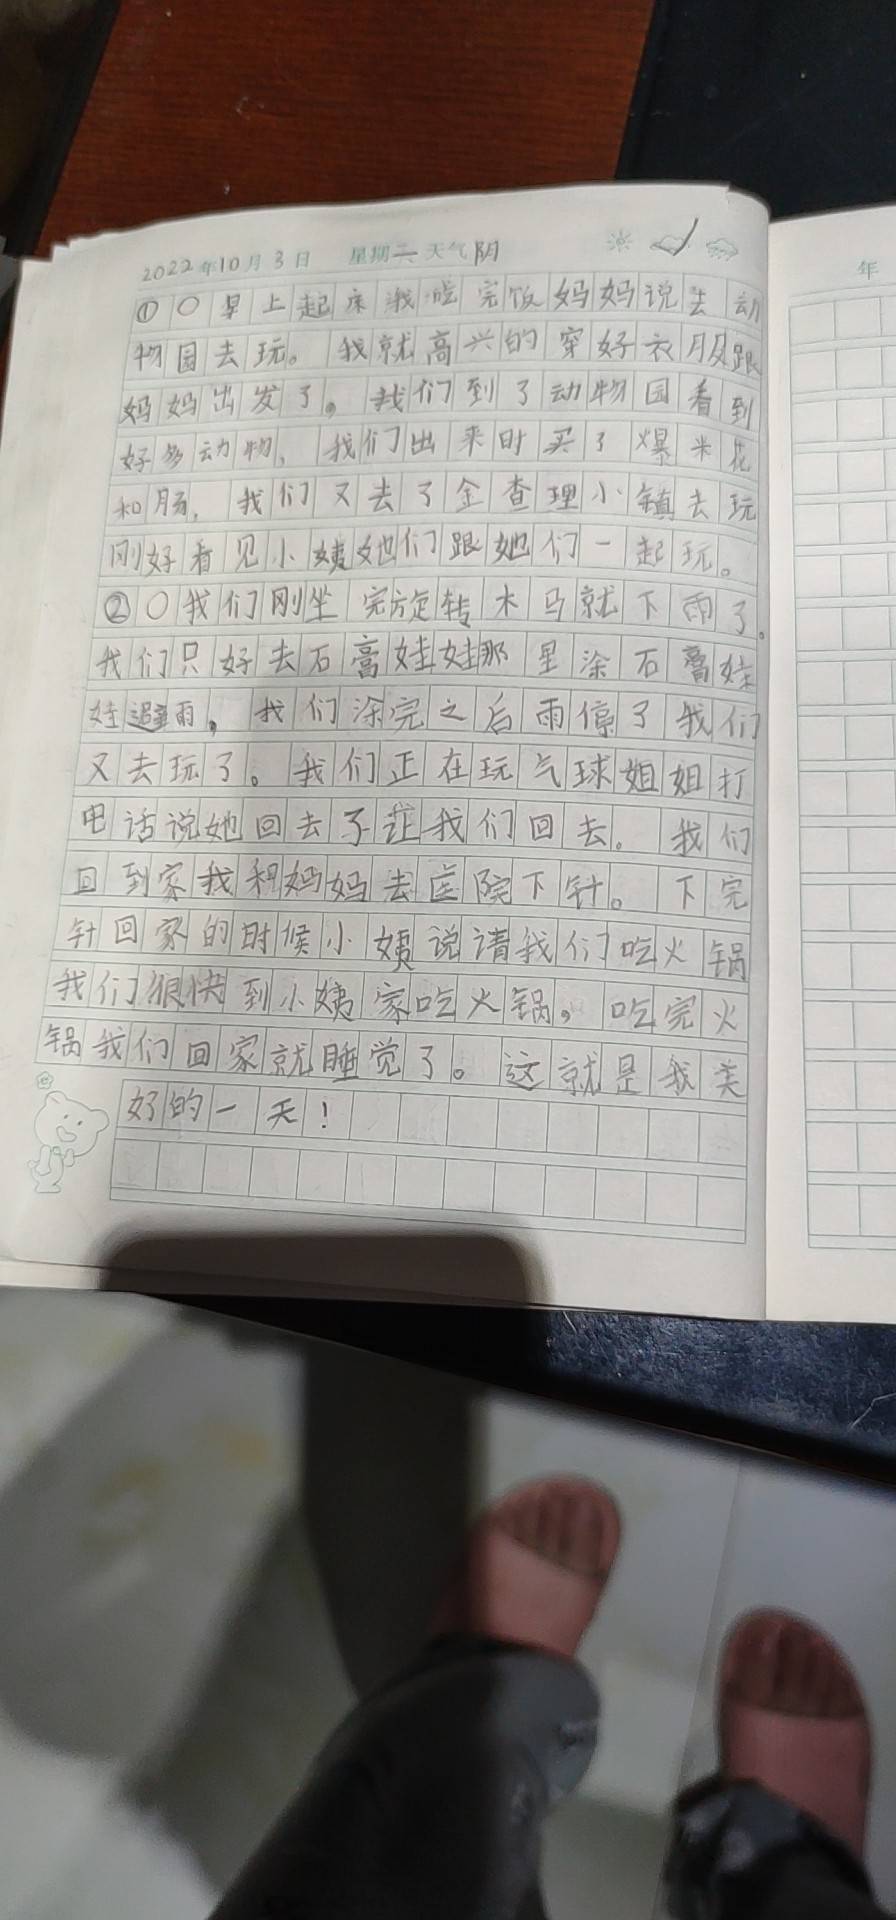 2022年10月3日 星期二 天气阴
①○早上起床我吃完饭妈妈说去动
物园去玩。我就高兴的穿好衣服跟
妈妈出发了。我们到了动物园看到
好多动物，我们出来时买了爆米花
和肠，我们又去了金查理小镇去玩
刚好看见小姨她们跟她们一起玩。
②○我们刚坐完旋转木马就下雨了。
我们只好去石膏娃娃那里涂石膏娃
娃避雨，我们涂完之后雨停了我们
又去玩了。我们正在玩气球姐姐打
电话说她回去了让我们回去。我们
回到家我和妈妈去医院下针。下完
针回家的时候小姨说请我们吃火锅
我们很快到小姨家吃火锅，吃完火
锅我们回家就睡觉了。这就是我美
好的一天！
年